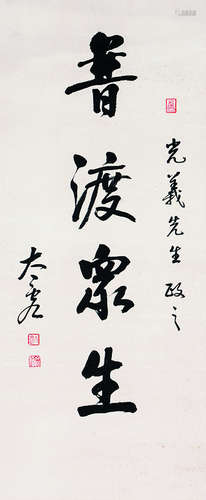 光義先生政之
普渡眾生
太虛